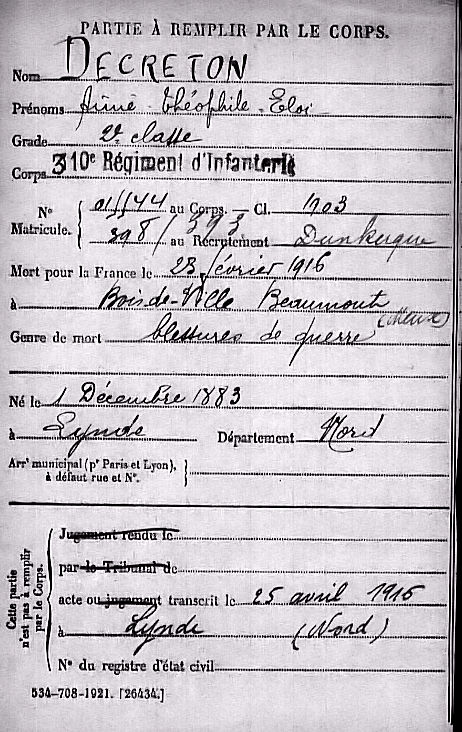 PARTIE À REMPLIR PAR LE CORPS.
Nom DECRETON
Prénoms Aimé Théophile Eloi
Grade 2e classe
Corps 310e Régiment d'Infanterie
N° Matricule. { 01/144 au Corps. — Cl. 1903
398/393 au Recrutement Dunkerque
Mort pour la France le 23 février 1916
à Bois-de-Ville Beaumont (Meuse)
Genre de mort blessures de guerre
Né le 1 Décembre 1883
à Lynde Département Nord
Arrt municipal (pr Paris et Lyon),
à défaut rue et N°.
Cette partie n'est pas à remplir par le Corps.
Jugement rendu le
par le Tribunal de
acte ou jugement transcrit le 25 avril 1916
à Lynde (Nord)
N° du registre d'état civil
534-708-1921. [26434.]